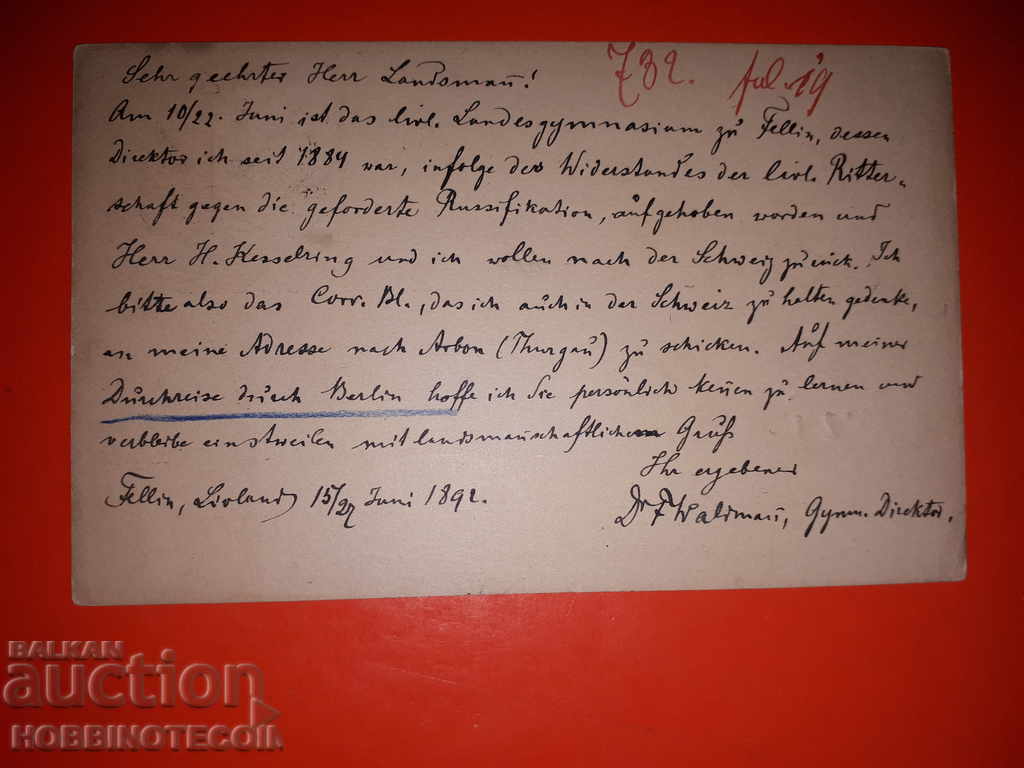 Sehr geehrter Herr Landsmañ!
732. fol. 19
Am 10/22. Juni ist das livl. Landesgymnasium zu Fellin, dessen
Direktor ich seit 1884 war, infolge des Widerstandes der livl. Ritter-
schaft gegen die geforderte Russifikation, aufgehoben worden und
Herr H. Kesselring und ich wollen nach der Schweiz zurück. Ich
bitte also das Corr. Bl., das ich auch in der Schweiz zu halten gedenke,
an meine Adresse nach Arbon (Thurgau) zu schicken. Auf meiner
Durchreise durch Berlin hoffe ich Sie persönlich keñen zu lernen und
verbleibe einstweilen mit landsmañschaftlichem Gruß
Ihr ergebener
Fellin, Livland, 15/27 Juni 1892.
Dr F Waldmañ, Gymn. Direktor.
BALKAN
auction
HOBBINOTECOIL